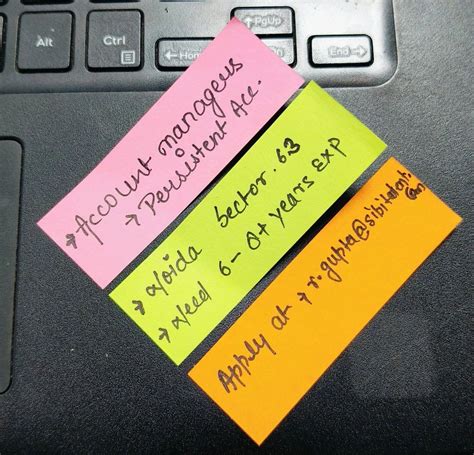 Alt
Ctrl
Home
PgUp
End
→ Account manageus
→ Persistent Acc.
→ Noida Sector. 63
→ Need 6 - 8+ years EXP
Apply at → r.gupta@sibitalent.
com